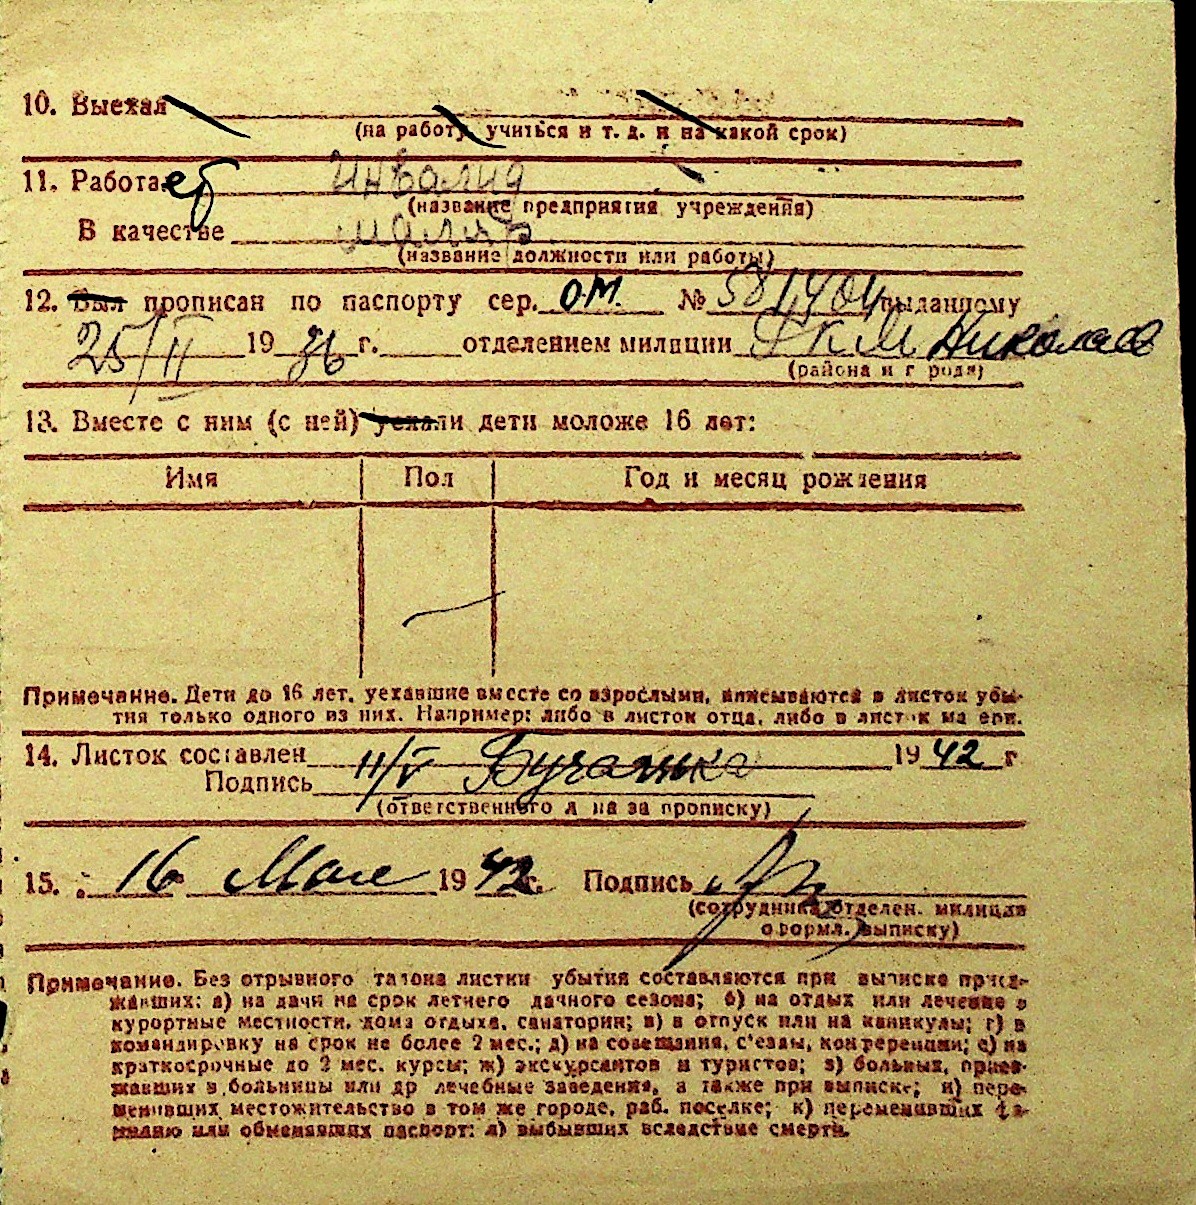 10. Выехал
(на работу, учиться и т. д. и на какой срок)
11. Работает инвалид
(название предприятия учреждения)
В качестве маляр
(название должности или работы)
12. Был прописан по паспорту сер. О.М. № 581404 выданному
25/II 1936 г. отделением милиции РКМ Николаев
(района и города)
13. Вместе с ним (с ней) уехали дети моложе 16 лет:
Имя Пол Год и месяц рождения
Примечание. Дети до 16 лет, уехавшие вместе со взрослыми, вписываются в листок убы-
тия только одного из них. Например: либо в листок отца, либо в листок матери.
14. Листок составлен 11/V 1942 г
Подпись
(ответственного лица за прописку)
15. 16 Мая 1942 г. Подпись
(сотрудника отделен. милиции
оформл. выписку)
Примечание. Без отрывного талона листки убытия составляются при выписке приез-
жавших: а) на дачи на срок летнего дачного сезона; б) на отдых или лечение в
курортные местности, дома отдыха, санатории; в) в отпуск или на каникулы; г) в
командировку на срок не более 2 мес.; д) на совещания, с'езды, конференции; е) на
краткосрочные до 2 мес. курсы; ж) экскурсантов и туристов; з) больных, приез-
жавших в больницы или др лечебные заведения, а также при выписке; и) пере-
менивших местожительство в том же городе, раб. поселке; к) переменивших фа-
милию или обменявших паспорт; л) выбывших вследствие смерти.